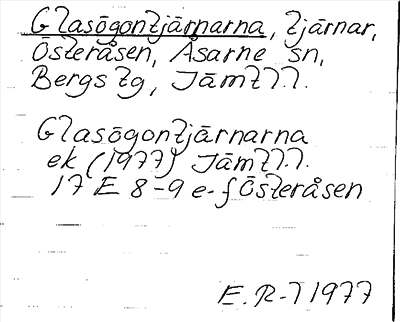 Glasögontjärnarna, tjärnar,
Österåsen, Åsarne sn,
Bergs tg, Jämtl.
Glasögontjärnarna
ek (1977) Jämtl.
17 E 8-9 e-f Österåsen
E.R-T 1977